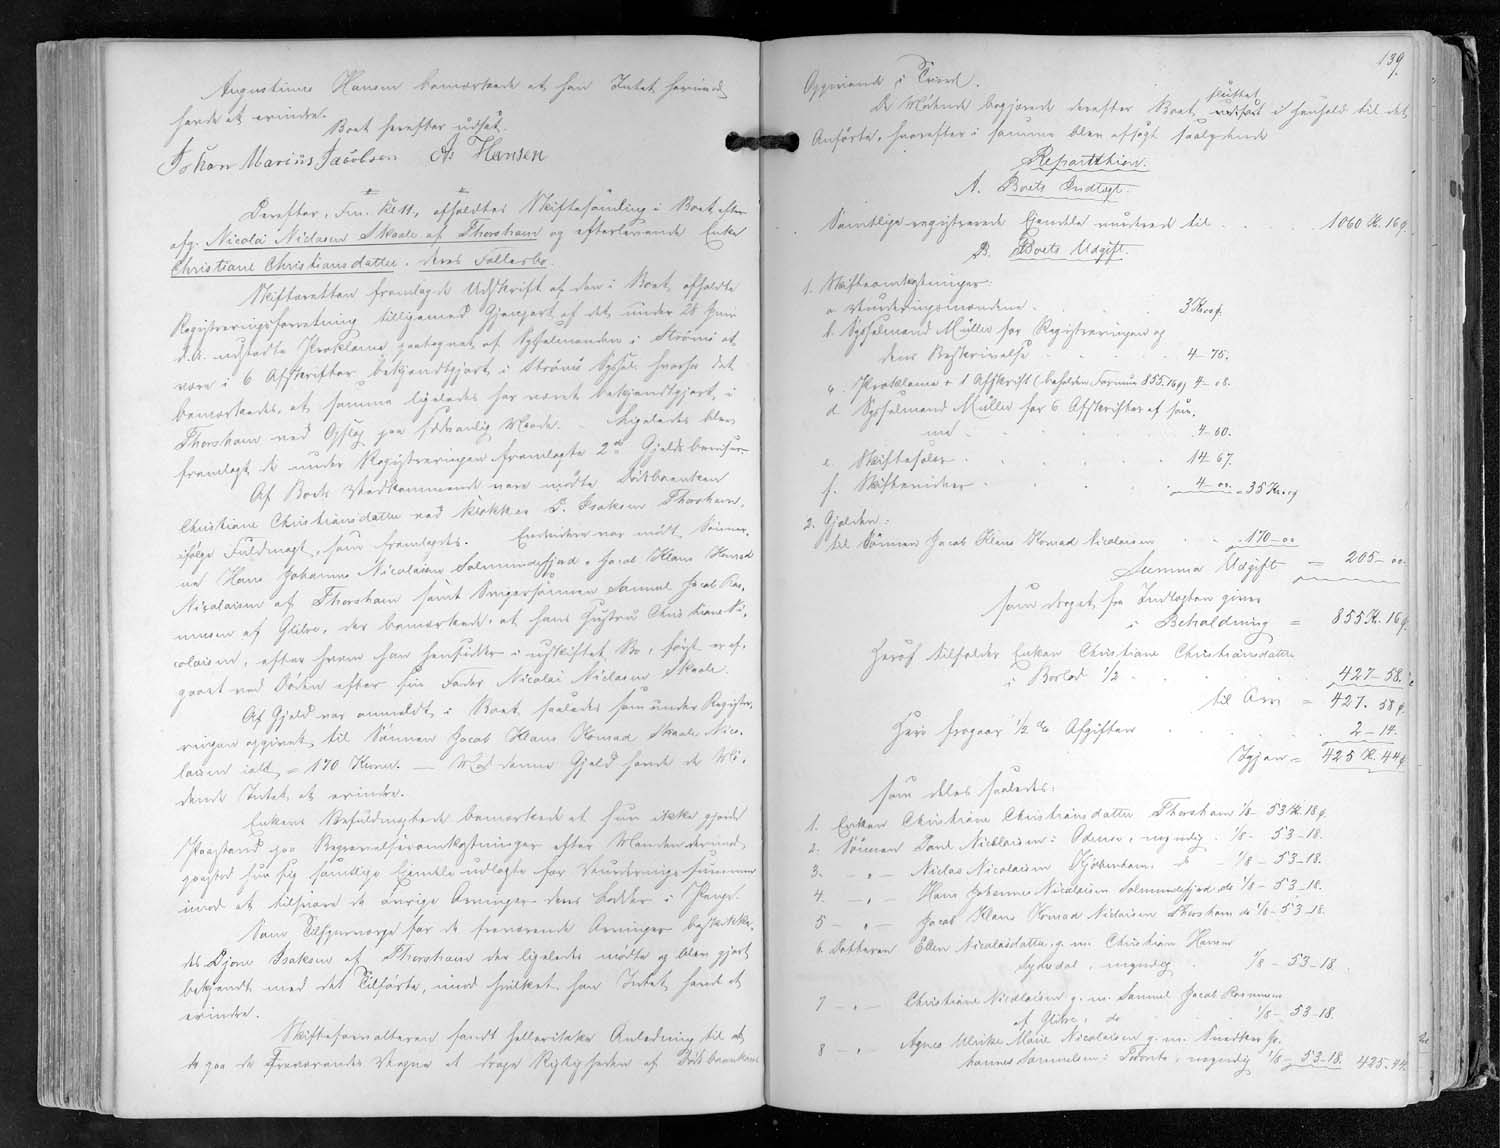 Augustinus Hansen bemærkede at han Intet herimod
havde at erindre.
Boet herefter udsat.
Johan Marius Jacobsen As Hansen
Derefter, Fm. Kl 11, afholdtes Skiftesamling i Boet efter
afg. Nicolai Niclasen Skaale af Thorshavn og efterlevende Enke
Christiane Christiansdatter, deres Fællesbo.
Skifteretten fremlagde Udskrift af den i Boet afholdte
Registreringsforretning tilligemed Gjenpart af det under 28 Juni
d.A. udstedte Proklama paategnet af Sysselmanden i Strømø at
være i 6 Afskrifter bekjendtgjort i Strømø Syssel. hvorhos det
bemærkedes, at samme ligeledes har været bekjendtgjort i
Thorshavn ved Opslag paa sædvanlig Maade. Ligeledes blev
fremlagt de under Registreringen fremlagte 2de Gjeldsbeviser
Af Boets Vedkommende vare mødte Enken
Christiane Christiansdatter ved Klokker D. Isaksen Thorshavn,
ifølge Fuldmagt, som fremlagdes. Endvidere var mødt Sønner-
ne Hans Johannes Nicolaisen Solmundefjord, Jacob Klaus Konrad
Nicolaisen af Thorshavn samt Svigersønnen Samuel Jacob Ras-
mussen af Glibre, der bemærkede, at hans Hustru Christiane Ni-
colaisen, efter hvem han hensidder i uskiftet Bo, først er af-
gaaet ved Døden efter sin Fader Nicolai Niclasen Skaale.
Af Gjeld var anmeldt i Boet saaledes som under Registe-
ringen opgivet til Sønnen Jacob Klaus Konrad Skaale Nico-
laisen ialt = 170 Kroner. — Mod denne Gjeld havde de Mø-
dende Intet at erindre.
Enkens Befuldmægtigede bemærkede at hun ikke gjorde
Paastand paa Begravelsesomkostninger efter Manden derimod
paastod hun sig samtlige Eiendele udlagte for Vurderingssummen
imod at tilsvare de øvrige Arvinger deres Lodder i Penge.
Som Tilsynsværge for de fraværende Arvinger beskikke-
des Djone Isaksen af Thorshavn der ligeledes mødte og blev gjort
bekjendt med det Tilførte, imod hvilket han Intet havde at
erindre.
Skifteforvalteren fandt heller ikke Anledning til at
de paa de Fraværendes Vegne at drage Rigtigheden af
139.
Opgivende i Tvivl.
De Mødende begjærede derefter Boet sluttet i Henhold til det
Anførte, hvorefter i samme blev affagt saalydende
Repartition.
A. Boets Indtægt.
Samtlige registrerede Eiendele vurderede til 1060 Kr. 16 ø.
B. Boets Udgift.
1. Skifteomkostninger:
a Vurderingsmændene 3 Kr 00 ø.
b. Sysselmand Müller for Registreringen og
dens Beskrivelse 4-75.
c. Proklama + 1 Afskrift (beholden Formue 855.16ø) 4-08.
d Sysselmand Müller for 6 Afskrifter af sam-
me 4-00.
e. Skiftesaler 14-67.
f. Skifteveirer 4-00. = 35 Kr. 00 ø
2. Gjelden:
til Sønnen Jacob Klaus Konrad Nicolaisen 170-00
Summa Udgift = 205-00.
som draget fra Indtægten giver
i Behaldning = 855 Kr. 16 ø.
Heraf tilfalder Enken Christiane Christiansdatter
i Boslod 1/2 427-58.
til Arv = 427. 58 ø.
Heri fragaar 1/2 % Afgiften 2-14.
Igjen = 425 K. 44 ø
som deles saaledes:
1. Enken Christiane Christiansdatter Thorshavn 1/8 53 Kr. 18 ø.
2. Sønnen Poul Nicolaisen i Odense, myndig 1/8 - 53-18.
3. —„— Niclas Nicolaisen Kjøbenhavn, do - 1/8 - 53-18.
4. —„— Hans Johannes Nicolaisen Solmundefjord do 1/8 - 53-18.
5 —„— Jacob Klaus Konrad Nicolaisen Thorshavn do 1/8 - 53-18.
6 Datteren Ellen Nicolaidatter, g. m. Christian Hansen
, myndig 1/8 - 53-18.
7 —„— Christiane Nicolaisen g. m. Samuel Jacob Rasmussen
af Glibre, do 1/8 - 53-18.
8 —„— Agnes Ulrike Marie Nicolaisen g. m. Snedker Jo-
hannes Samuelsen i , myndig 1/8 - 53-18. 425.44.